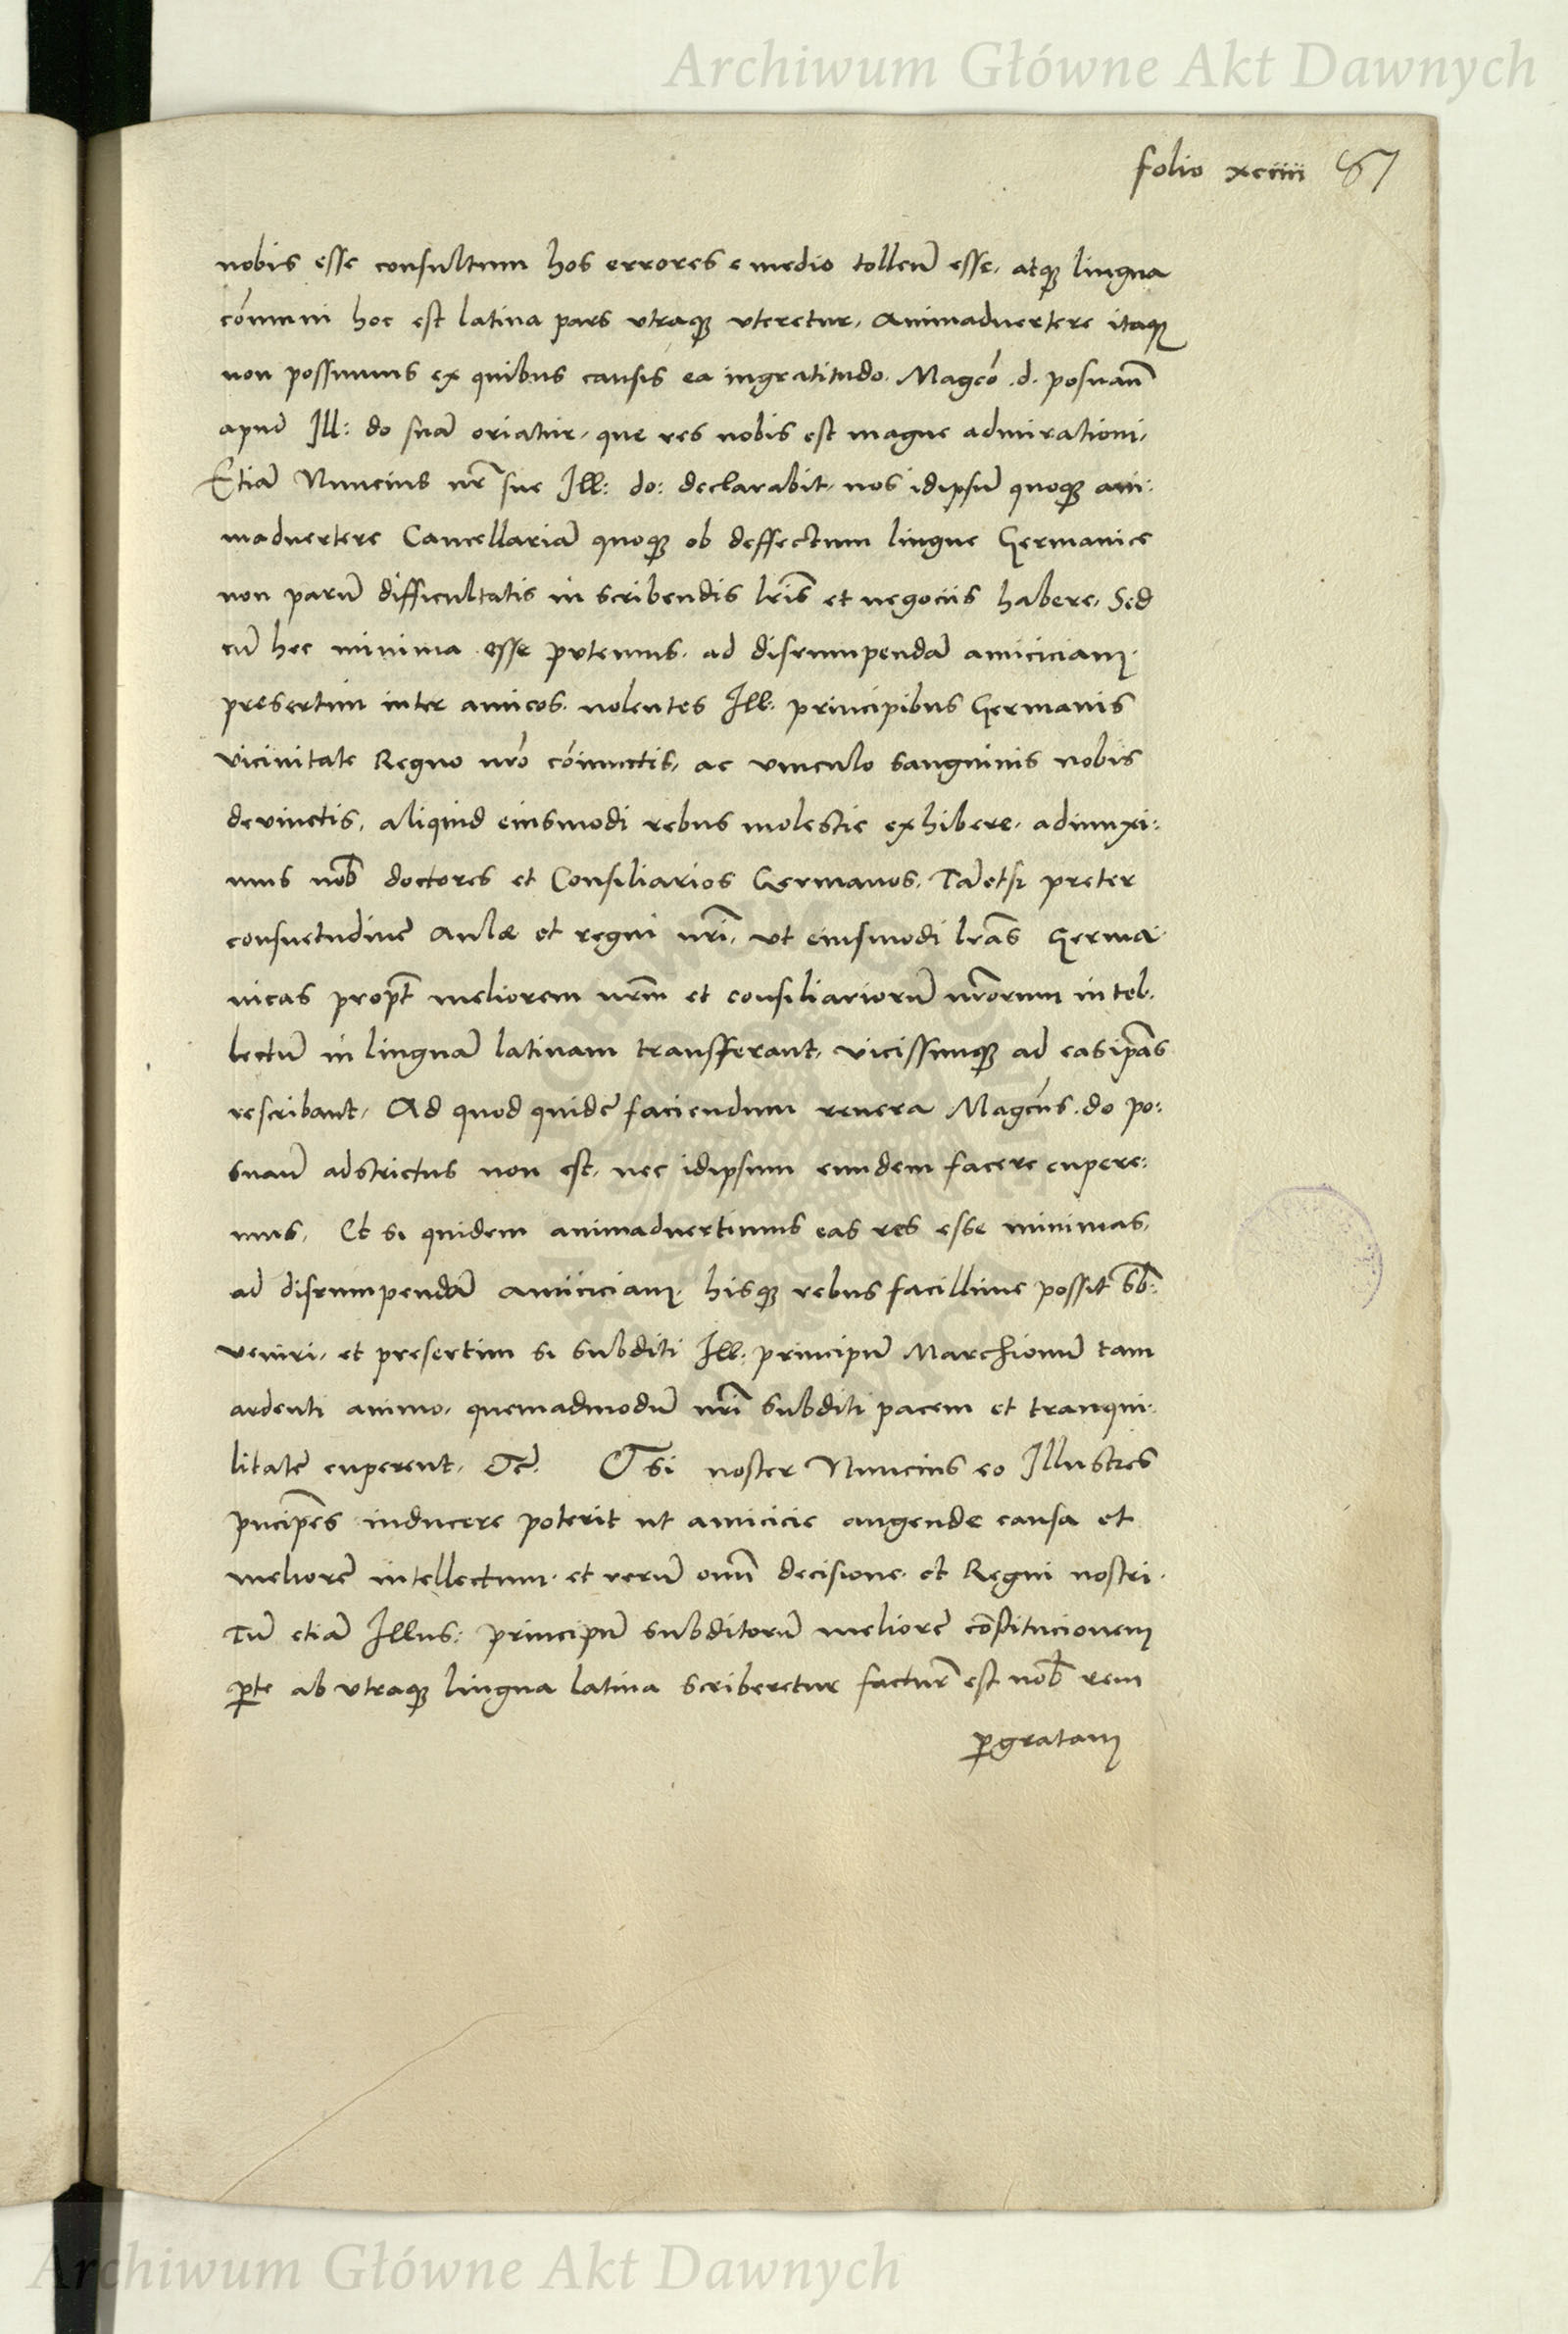 Archiwum Główne Akt Dawnych
folio xciiii 67
nobis esse consultum hos errores e medio tollen̄ esse, atq̨ lingua
cōmuni hoc est latina pars vtraq̨ vteretur, Animaduertere itaq̨
non possumus ex quibus causis ea ingratitudo. Magco .d. posnan̄
apud Ill: do suā oriatur, que res nobis est magne admirationi,
Etiā Nuncius nr̄ sue Ill: do: declarabit, nos idipsū quoq̨ ani:
maduertere Cancellariā quoq̨ ob deffectum lingue Germanice
non parū difficultatis in scribendis lr̄is et negociis habere, Sed
cū hec minima esse putemus, ad disrumpendā amiciciam,
presertim inter amicos, nolentes Ill. principibus Germanis
vicinitate Regno nr̄o cōiunctis, ac vinculo sanguinis nobis
devinctis, aliquid eiusmodi rebus molestie exhibere, adiunxi:
mus nob̄ doctores et Consiliarios Germanos, Tāetsi preter
consuetudinē Aulæ et regni nr̄i, vt eiusmodi lr̄as Germa:
nicas propt̄ meliorem nr̄m et consiliariorū nr̄orum intel:
lectū in linguā latinam transfferant, vicissimq̨ ad eas ip̄as
rescribant, Ad quod quidē faciendum revera Magcus .do po:
snan̄ adstrictus non est, nec idipsum eundem facere cupere:
mus, Et si quidem animaduertimus eas res esse minimas,
ad disrumpendā amiciciam, hisq̨ rebus facillime possit sb̄:
veniri, et presertim si subditi Ill: principū Marchionū tam
ardenti animo, quemadmodū nr̄i subditi pacem et tranqui:
litatē cuperent, &c̄. Et si noster Nuncius eo Illustres
pncip̄es inducere poterit ut amicicie augende causa et
meliorē intellectum, et rerū om̄n̄ decisione, et Regni nostri,
Tū etiā Illus: principū subditorū meliorē cōstitucionem
ꝑte ab vtraq̨ lingua latina scriberetur factur̄ est nob̄ rem
ꝑgratam
Archiwum Główne Akt Dawnych